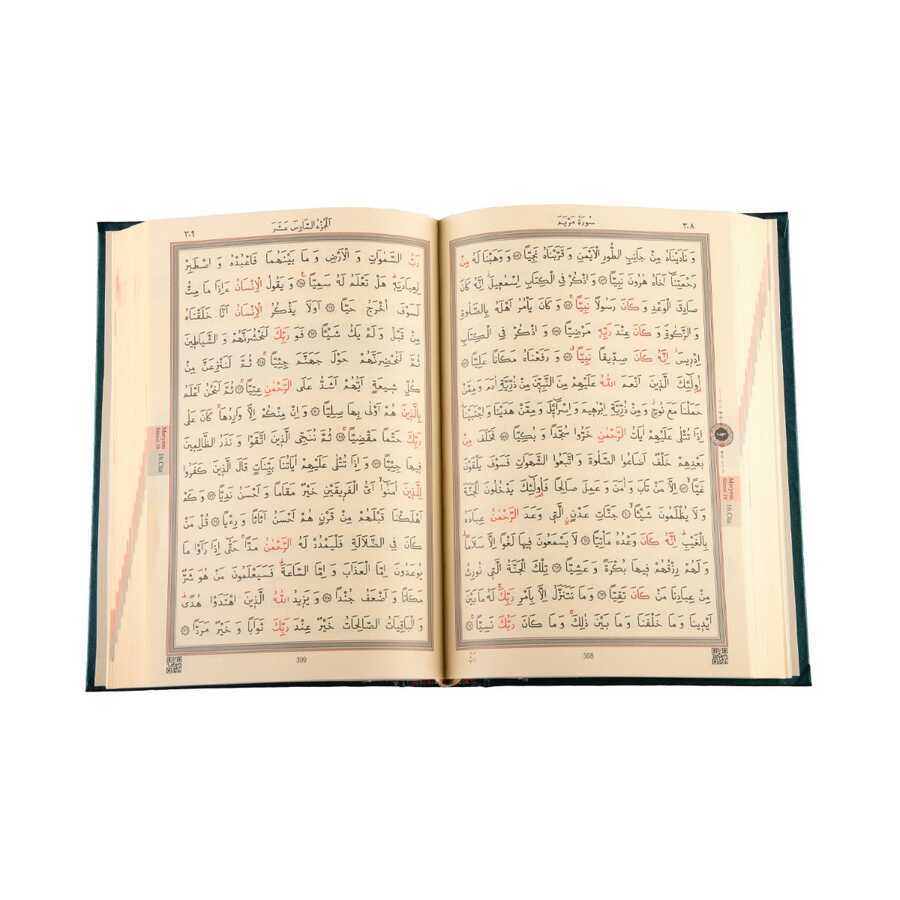 ٣٠٨
سُورَةُ مَرْيَمَ
وَ نَادَيْنَاهُ مِنْ جَانِبِ الطُّورِ الْاَيْمَنِ وَ قَرَّبْنَاهُ نَجِيًّا ﴿٥٢﴾ وَ وَهَبْنَا لَهُ مِنْ
رَحْمَتِنَٓا اَخَاهُ هٰرُونَ نَبِيًّا ﴿٥٣﴾ وَ اذْكُرْ فِي الْكِتَابِ اِسْمٰعٖيلَؗ اِنَّهُ كَانَ
صَادِقَ الْوَعْدِ وَ كَانَ رَسُولًا نَبِيًّاۚ ﴿٥٤﴾ وَ كَانَ يَأْمُرُ اَهْلَهُ بِالصَّلٰوةِ
وَ الزَّكٰوةِ وَ كَانَ عِنْدَ رَبِّهٖ مَرْضِيًّا ﴿٥٥﴾ وَ اذْكُرْ فِي الْكِتَابِ
اِدْرٖيسَؗ اِنَّهُ كَانَ صِدّٖيقًا نَبِيًّاۗ ﴿٥٦﴾ وَ رَفَعْنَاهُ مَكَانًا عَلِيًّا ﴿٥٧﴾
اُو۬لٰٓئِكَ الَّذٖينَ اَنْعَمَ اللّٰهُ عَلَيْهِمْ مِنَ النَّبِيّٖنَ مِنْ ذُرِّيَّةِ اٰدَمَ وَ مِمَّنْ
حَمَلْنَا مَعَ نُوحٍؗ وَ مِنْ ذُرِّيَّةِ اِبْرٰهٖيمَ وَ اِسْرَٓائٖلَؗ وَ مِمَّنْ هَدَيْنَا وَ اجْتَبَيْنَاۜ
اِذَا تُتْلٰى عَلَيْهِمْ اٰيَاتُ الرَّحْمٰنِ خَرُّوا سُجَّدًا وَ بُكِيًّا ﴿٥٨﴾ فَخَلَفَ مِنْ
بَعْدِهِمْ خَلْفٌ اَضَاعُوا الصَّلٰوةَ وَ اتَّبَعُوا الشَّهَوَاتِ فَسَوْفَ يَلْقَوْنَ
غَيًّاۙ ﴿٥٩﴾ اِلَّا مَنْ تَابَ وَ اٰمَنَ وَ عَمِلَ صَالِحًا فَاُو۬لٰٓئِكَ يَدْخُلُونَ الْجَنَّةَ
وَ لَا يُظْلَمُونَ شَيْـًٔاۙ ﴿٦٠﴾ جَنَّاتِ عَدْنٍۨ الَّتٖي وَعَدَ الرَّحْمٰنُ عِبَادَهُ
بِالْغَيْبِۜ اِنَّهُ كَانَ وَعْدُهُ مَأْتِيًّا ﴿٦١﴾ لَا يَسْمَعُونَ فٖيهَا لَغْوًا اِلَّا سَلَامًاۜ
وَ لَهُمْ رِزْقُهُمْ فٖيهَا بُكْرَةً وَ عَشِيًّا ﴿٦٢﴾ تِلْكَ الْجَنَّةُ الَّتٖي نُورِثُ
مِنْ عِبَادِنَا مَنْ كَانَ تَقِيًّا ﴿٦٣﴾ وَ مَا نَتَنَزَّلُ اِلَّا بِاَمْرِ رَبِّكَۚ لَهُ مَا بَيْنَ
اَيْدٖينَا وَ مَا خَلْفَنَا وَ مَا بَيْنَ ذٰلِكَۚ وَ مَا كَانَ رَبُّكَ نَسِيًّاۚ ﴿٦٤﴾
308
Meryem
Sûresi 19
16.Cüz
٣٠٩
اَلْجُزْءُ السَّادِسَ عَشَرَ
رَبُّ السَّمٰوَاتِ وَ الْاَرْضِ وَ مَا بَيْنَهُمَا فَاعْبُدْهُ وَ اصْطَبِرْ
لِعِبَادَتِهٖۜ هَلْ تَعْلَمُ لَهُ سَمِيًّا ﴿٦٥﴾ وَ يَقُولُ الْاِنْسَانُ ءَاِذَا مَا مِتُّ
لَسَوْفَ اُخْرَجُ حَيًّا ﴿٦٦﴾ اَوَلَا يَذْكُرُ الْاِنْسَانُ اَنَّا خَلَقْنَاهُ
مِنْ قَبْلُ وَ لَمْ يَكُ شَيْـًٔا ﴿٦٧﴾ فَوَ رَبِّكَ لَنَحْشُرَنَّهُمْ وَ الشَّيَاطٖينَ
ثُمَّ لَنُحْضِرَنَّهُمْ حَوْلَ جَهَنَّمَ جِثِيًّاۚ ﴿٦٨﴾ ثُمَّ لَنَنْزِعَنَّ مِنْ
كُلِّ شٖيعَةٍ اَيُّهُمْ اَشَدُّ عَلَى الرَّحْمٰنِ عِتِيًّاۚ ﴿٦٩﴾ ثُمَّ لَنَحْنُ اَعْلَمُ
بِالَّذٖينَ هُمْ اَوْلٰى بِهَا صِلِيًّا ﴿٧٠﴾ وَ اِنْ مِنْكُمْ اِلَّا وَارِدُهَاۚ كَانَ عَلٰى
رَبِّكَ حَتْمًا مَقْضِيًّاۚ ﴿٧١﴾ ثُمَّ نُنَجِّي الَّذٖينَ اتَّقَوْا وَ نَذَرُ الظَّالِمٖينَ
فٖيهَا جِثِيًّا ﴿٧٢﴾ وَ اِذَا تُتْلٰى عَلَيْهِمْ اٰيَاتُنَا بَيِّنَاتٍ قَالَ الَّذٖينَ كَفَرُوا
لِلَّذٖينَ اٰمَنُٓواۙ اَيُّ الْفَرٖيقَيْنِ خَيْرٌ مَقَامًا وَ اَحْسَنُ نَدِيًّا ﴿٧٣﴾ وَ كَمْ
اَهْلَكْنَا قَبْلَهُمْ مِنْ قَرْنٍ هُمْ اَحْسَنُ اَثَاثًا وَ رِءْيًا ﴿٧٤﴾ قُلْ مَنْ
كَانَ فِي الضَّلَالَةِ فَلْيَمْدُدْ لَهُ الرَّحْمٰنُ مَدًّاۚ حَتّٰٓى اِذَا رَاَوْا مَا
يُوعَدُونَ اِمَّا الْعَذَابَ وَ اِمَّا السَّاعَةَۜ فَسَيَعْلَمُونَ مَنْ هُوَ شَرٌّ
مَكَانًا وَ اَضْعَفُ جُنْدًا ﴿٧٥﴾ وَ يَزٖيدُ اللّٰهُ الَّذٖينَ اهْتَدَوْا هُدًىۜ
وَ الْبَاقِيَاتُ الصَّالِحَاتُ خَيْرٌ عِنْدَ رَبِّكَ ثَوَابًا وَ خَيْرٌ مَرَدًّا ﴿٧٦﴾
309
Meryem
Sûresi 19
16.Cüz